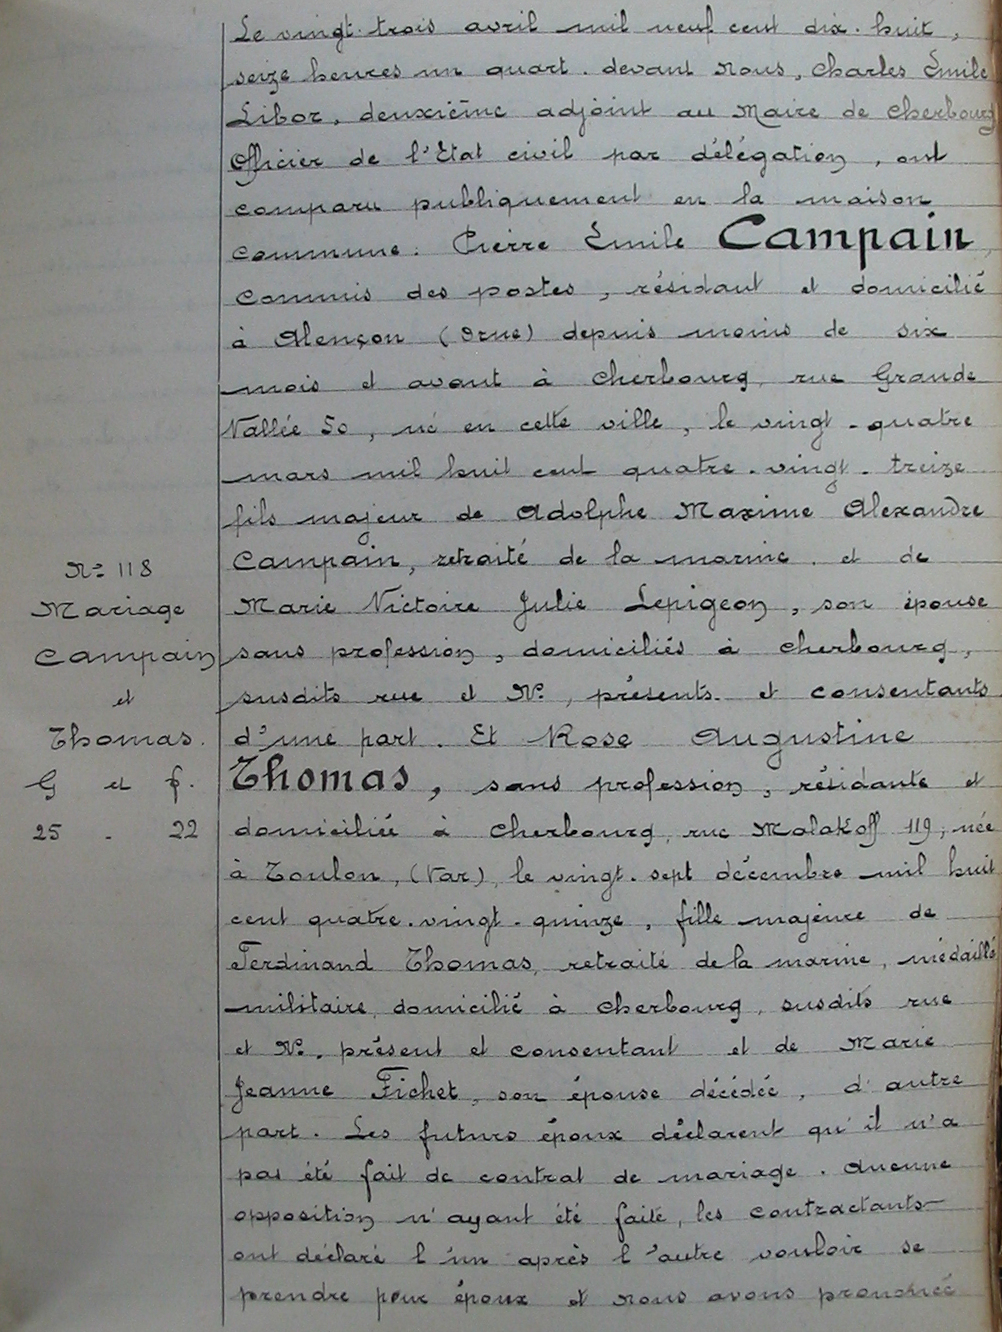 Le vingt-trois avril mil neuf cent dix-huit,
seize heures un quart. devant Nous, Charles Emile
Libor, deuxième adjoint au Maire de Cherbourg
Officier de l'Etat civil par délégation, ont
comparu publiquement en la maison
commune. Pierre Emile Campain,
Commis des postes, résidant et domicilié
à Alençon (Orne) depuis moins de six
mois et avant à Cherbourg, rue Grande
Vallée 50, né en cette ville, le vingt-quatre
mars mil huit cent quatre-vingt-treize
fils majeur de Adolphe Maxime Alexandre
Campain, retraité de la marine. et de
Marie Victoire Julie Lepigeon, son épouse
sans profession, domiciliés à Cherbourg,
susdits rue et No, présents et consentants
d'une part. Et Rose Augustine
Thomas, sans profession, résidante et
domiciliée à Cherbourg, rue Malakoff 119, née
à Toulon, (Var), le vingt-sept décembre mil huit
cent quatre-vingt-quinze, fille majeure de
Ferdinand Thomas, retraité de la marine, médaillé
militaire, domicilié à Cherbourg, susdits rue
et No. présent et consentant et de Marie
Jeanne Fichet, son épouse décédée, d'autre
part. Les futurs époux déclarent qu'il n'a
pas été fait de contrat de mariage. Aucune
opposition n'ayant été faite, les contractants
ont déclaré l'un après l'autre vouloir se
prendre pour époux et nous avons prononcé
No 118
Mariage
Campain
et
Thomas.
G et f.
25 - 22